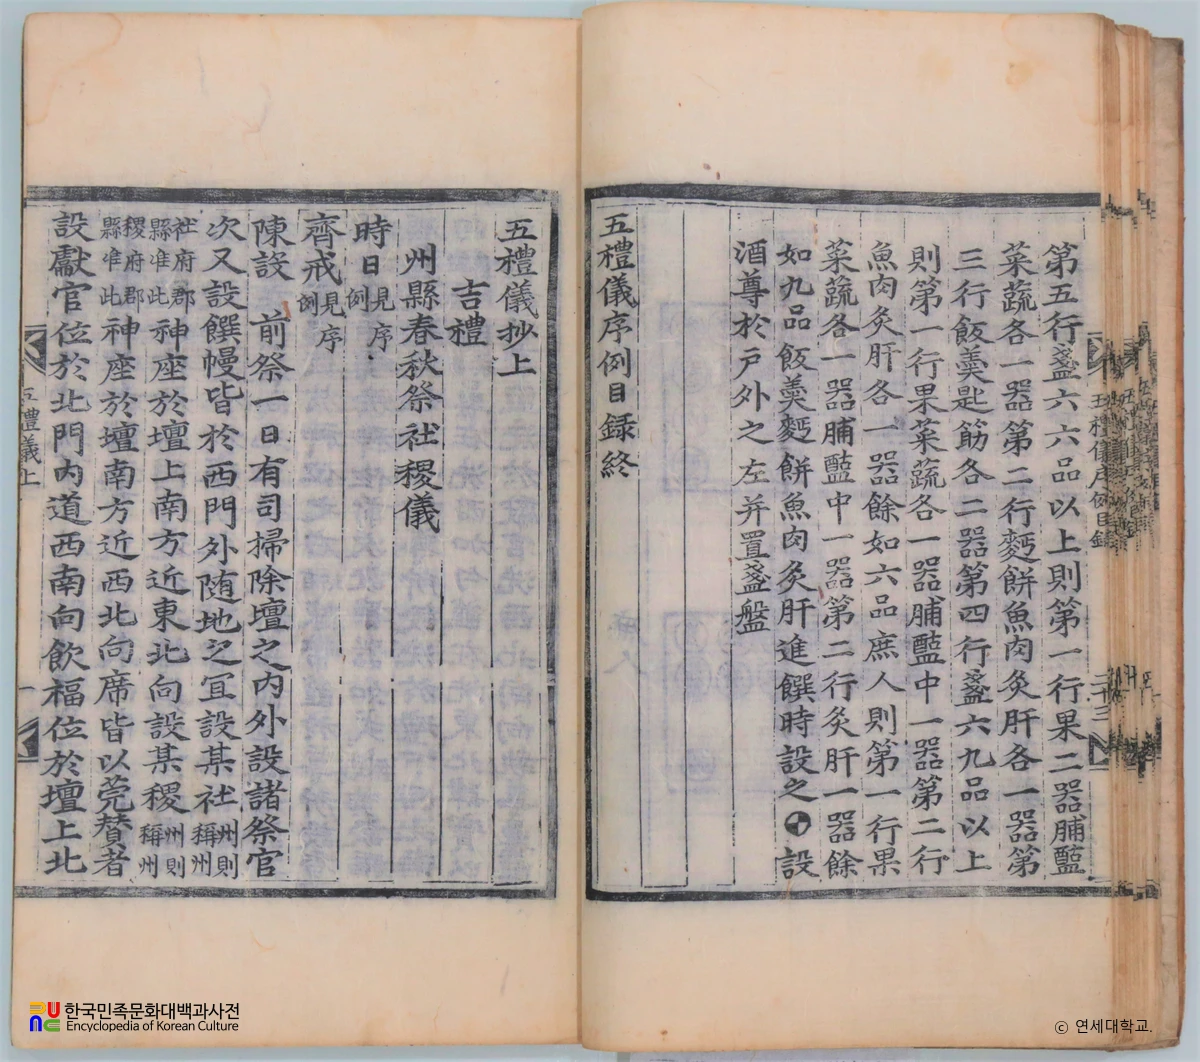 第五行盞六六品以上則第一行果二器脯醢
菜蔬各一器第二行麪餠魚肉炙肝各一器第
三行飯羹匙筯各二器第四行盞六九品以上
則第一行果菜蔬各一器脯醢中一器第二行
魚肉炙肝各一器餘如六品庶人則第一行果
菜蔬各一器脯醢中一器第二行炙肝一器餘
如九品飯羹麪餠魚肉炙肝進饌時設之設
酒尊於戶外之左并置盞盤
五禮儀序例目録終
五禮儀抄上
吉禮
州縣春秋祭社稷儀
時日見序例
齊戒見序例
陳設 前祭一日有司掃除壇之内外設諸祭官
次又設饌幔皆於西門外随地之冝設某社州則稱州
社府郡縣准此神座於壇上南方近東北向設某稷州則稱州
稷府郡縣准此神座於壇南方近西北向席皆以莞賛者
設獻官位於北門内道西南向飮福位於壇上北
五禮儀上
一
한국민족문화대백과사전
Encyclopedia of Korean Culture
ⓒ 연세대학교.